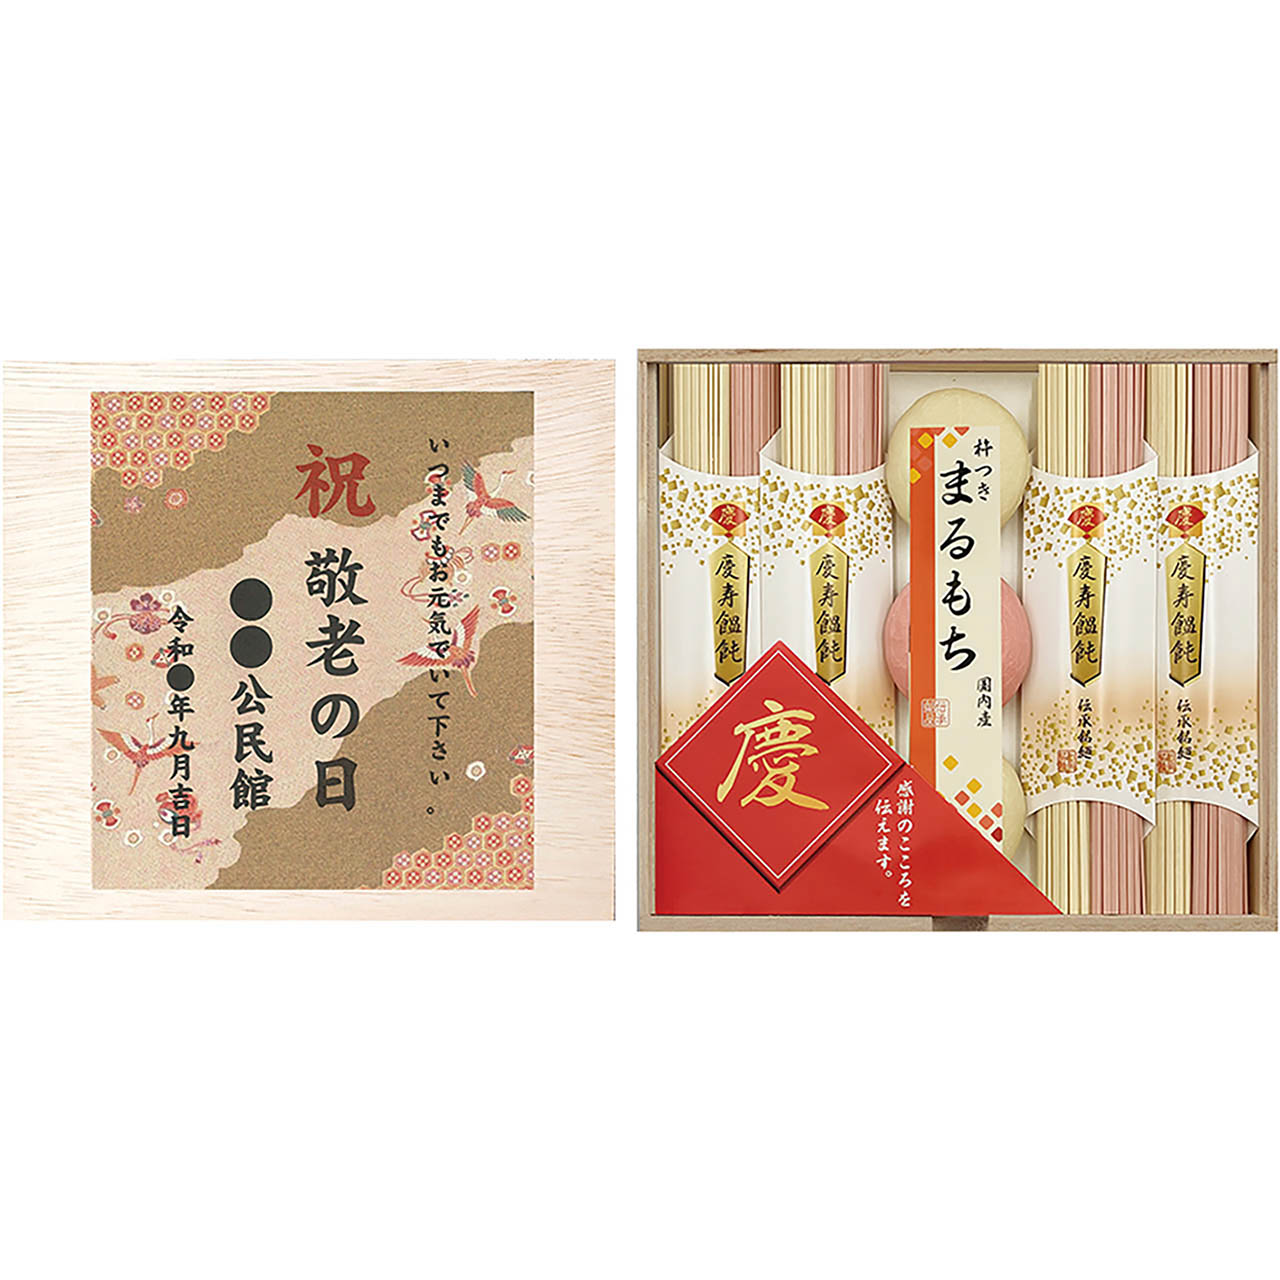 いつまでもお元気でいて下さい。
祝 敬老の日
●●公民館
令和●年九月吉日
慶
慶寿饂飩
慶
慶寿饂飩
杵つき
まるもち
国内産
慶
慶寿饂飩
伝承銘麺
慶
慶寿饂飩
伝承銘麺
慶
感謝のこころを
伝えます。